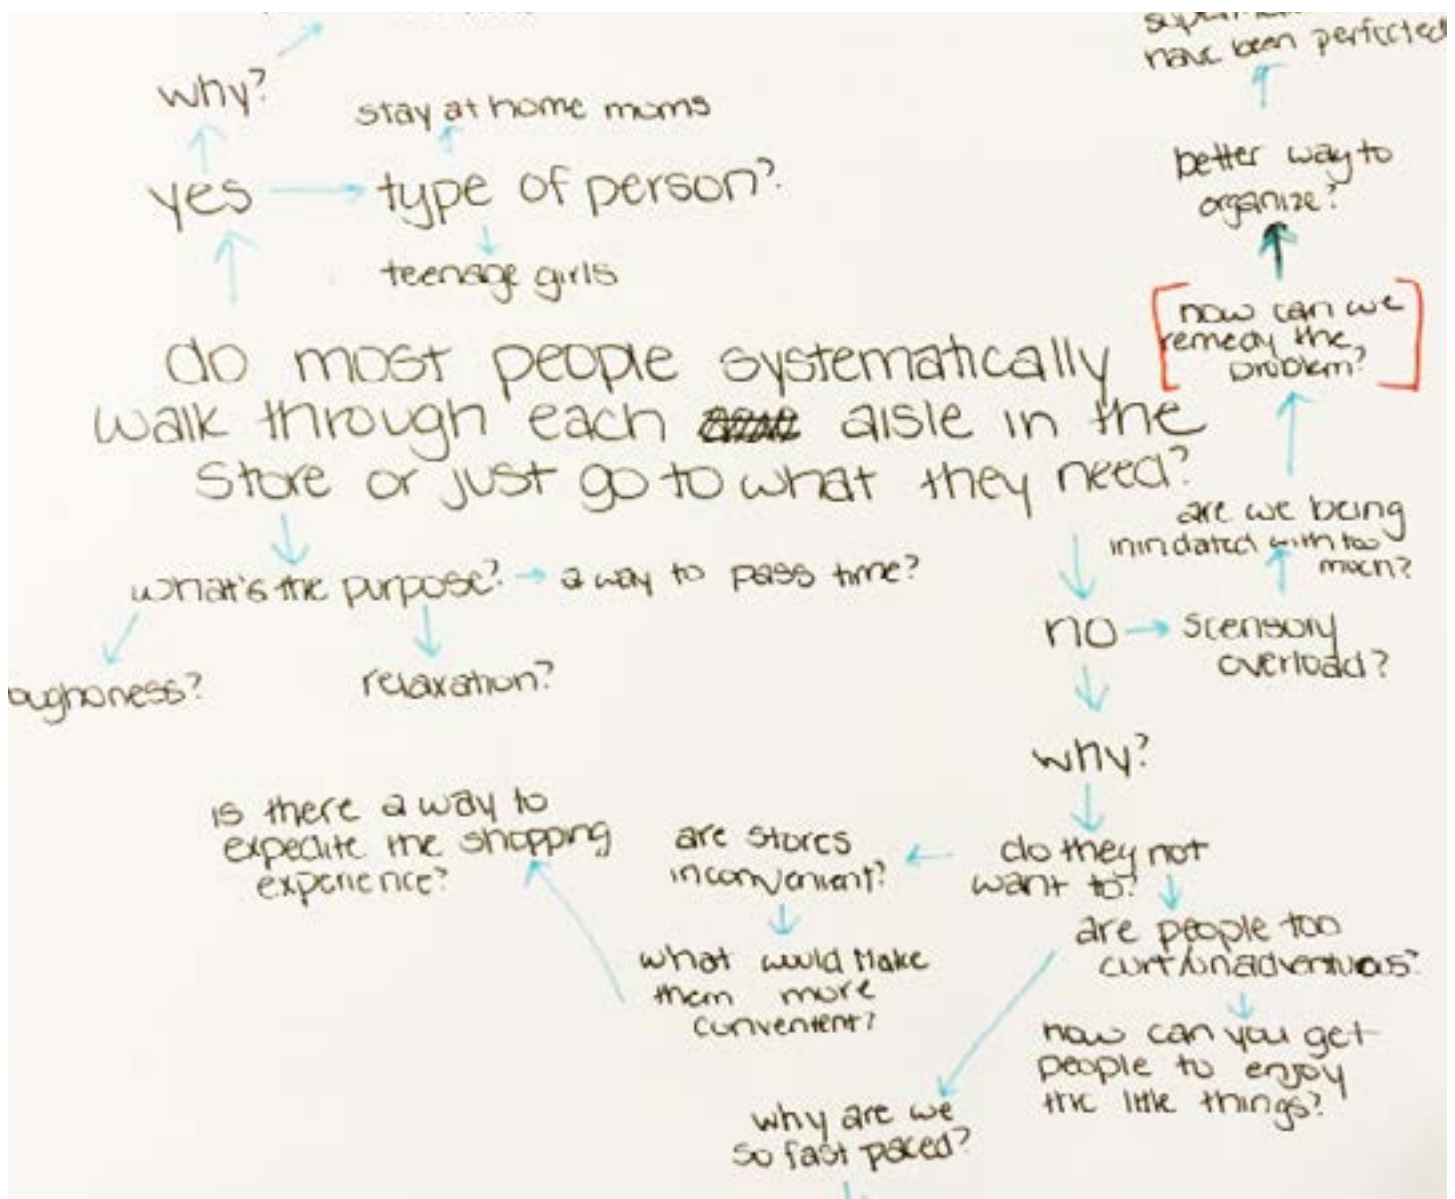 have been perfected
why?
stay at home moms
better way to
organize?
yes
type of person?
teenage girls
how can we
remedy the
problem?
do most people systematically
walk through each aisle in the
store or just go to what they need?
are we being
inindated with too
much?
what's the purpose?
a way to pass time?
no
scensory
overload?
oughoness?
relaxation?
why?
is there a way to
expedite the shopping
experience?
are stores
inconvenient?
do they not
want to?
are people too
curt/unadventurous?
what would make
them more
convenient?
how can you get
people to enjoy
the little things?
why are we
so fast paced?